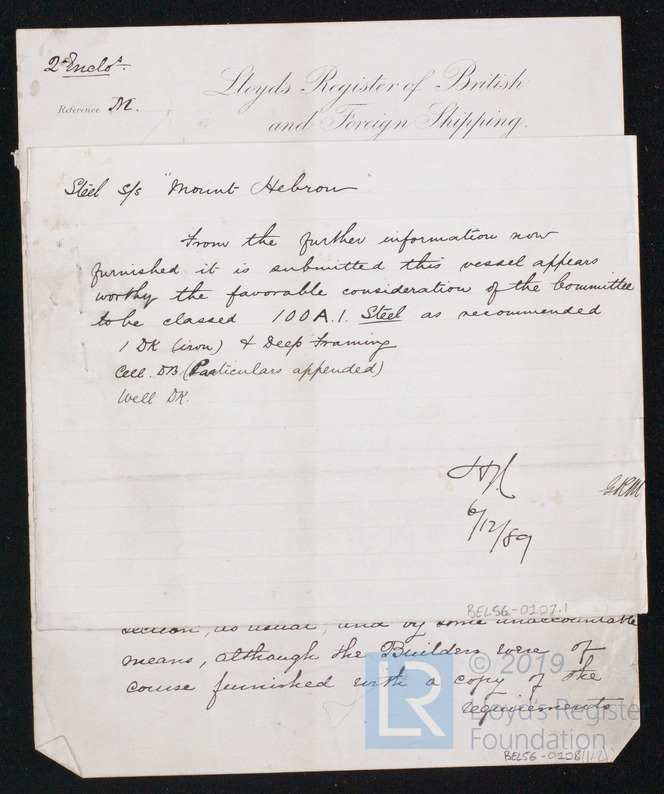 2 Enclos.
Lloyds Register of British
Reference M.
and Foreign Shipping.
Steel s/s "Mount Hebron"
From the further information now
furnished it is submitted this vessel appears
worthy the favorable consideration of the Committee
to be classed 100A.1. Steel as recommended
1 DK (iron) & Deep Framing
Cell. DB (Particulars appended)
Well DK.
6/12/89
BEL56-0107.1
section, as usual, and by some unaccountable
means, although the Builders were of
course furnished with a copy of the
requirements
LR
© 2019
Lloyd's Register
Foundation
BEL56-0108(1/2)